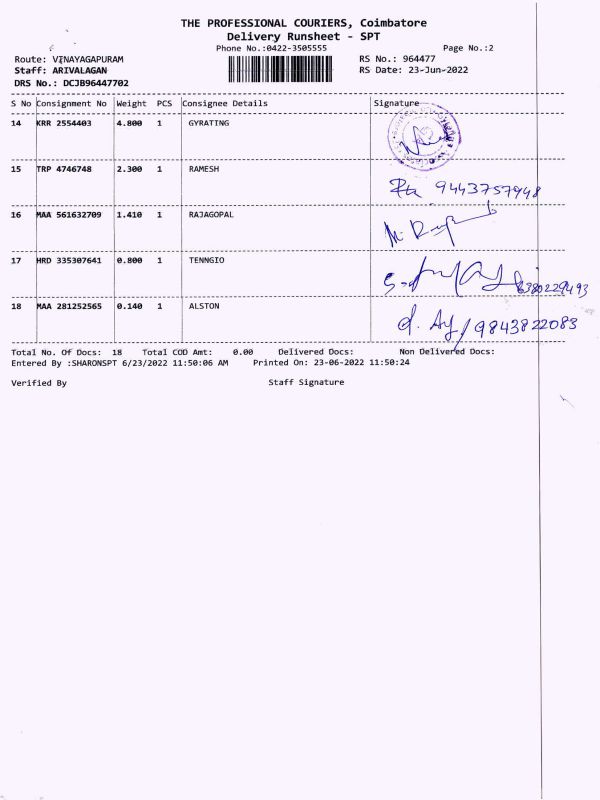 THE PROFESSIONAL COURIERS, Coimbatore
Delivery Runsheet - SPT
Phone No.:0422-3505555 Page No.:2
Route: VINAYAGAPURAM RS No.: 964477
Staff: ARIVALAGAN RS Date: 23-Jun-2022
DRS No.: DCJB96447702
S No Consignment No Weight PCS Consignee Details Signature
14 KRR 2554403 4.800 1 GYRATING
15 TRP 4746748 2.300 1 RAMESH 9443757948
16 MAA 561632709 1.410 1 RAJAGOPAL
17 HRD 335307641 0.800 1 TENNGIO 6380229493
18 MAA 281252565 0.140 1 ALSTON 9843822083
Total No. Of Docs: 18 Total COD Amt: 0.00 Delivered Docs: Non Delivered Docs:
Entered By :SHARONSPT 6/23/2022 11:50:06 AM Printed On: 23-06-2022 11:50:24
Verified By Staff Signature